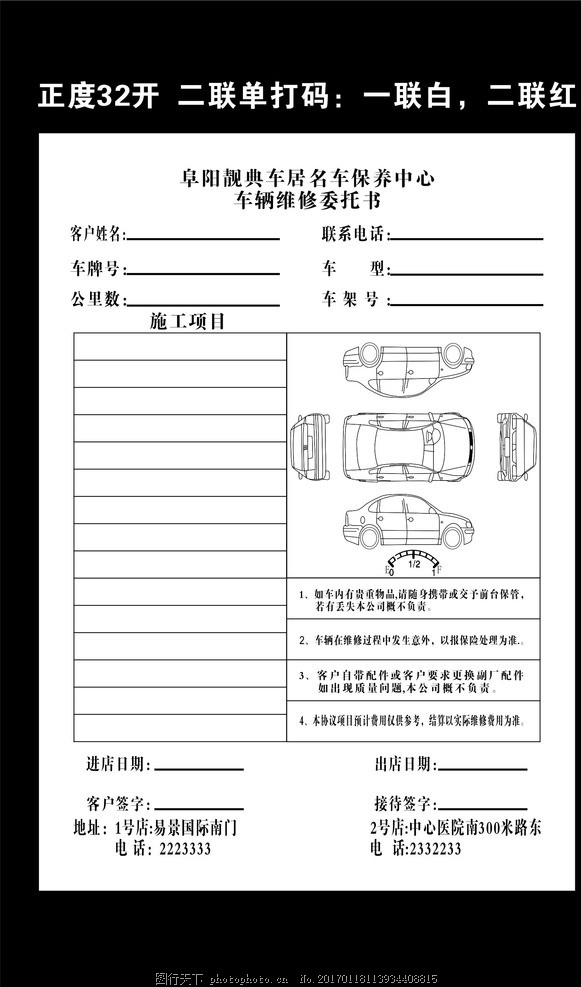 正度32开 二联单打码：一联白，二联红
阜阳靓典车居名车保养中心
车辆维修委托书
客户姓名: 联系电话:
车牌号: 车 型:
公里数: 车架号:
施工项目
E F
0 1/2 1
1、如车内有贵重物品,请随身携带或交予前台保管,
若有丢失本公司概不负责。
2、车辆在维修过程中发生意外，以报保险处理为准.。
3、客户自带配件或客户要求更换副厂配件
如出现质量问题,本公司概不负责。
4、本协议项目预计费用仅供参考，结算以实际维修费用为准。
进店日期: 出店日期:
客户签字: 接待签字:
地址：1号店:易景国际南门 2号店:中心医院南300米路东
电 话：2223333 电 话:2332233
图行天下 photophoto.cn No.20170118113934408815